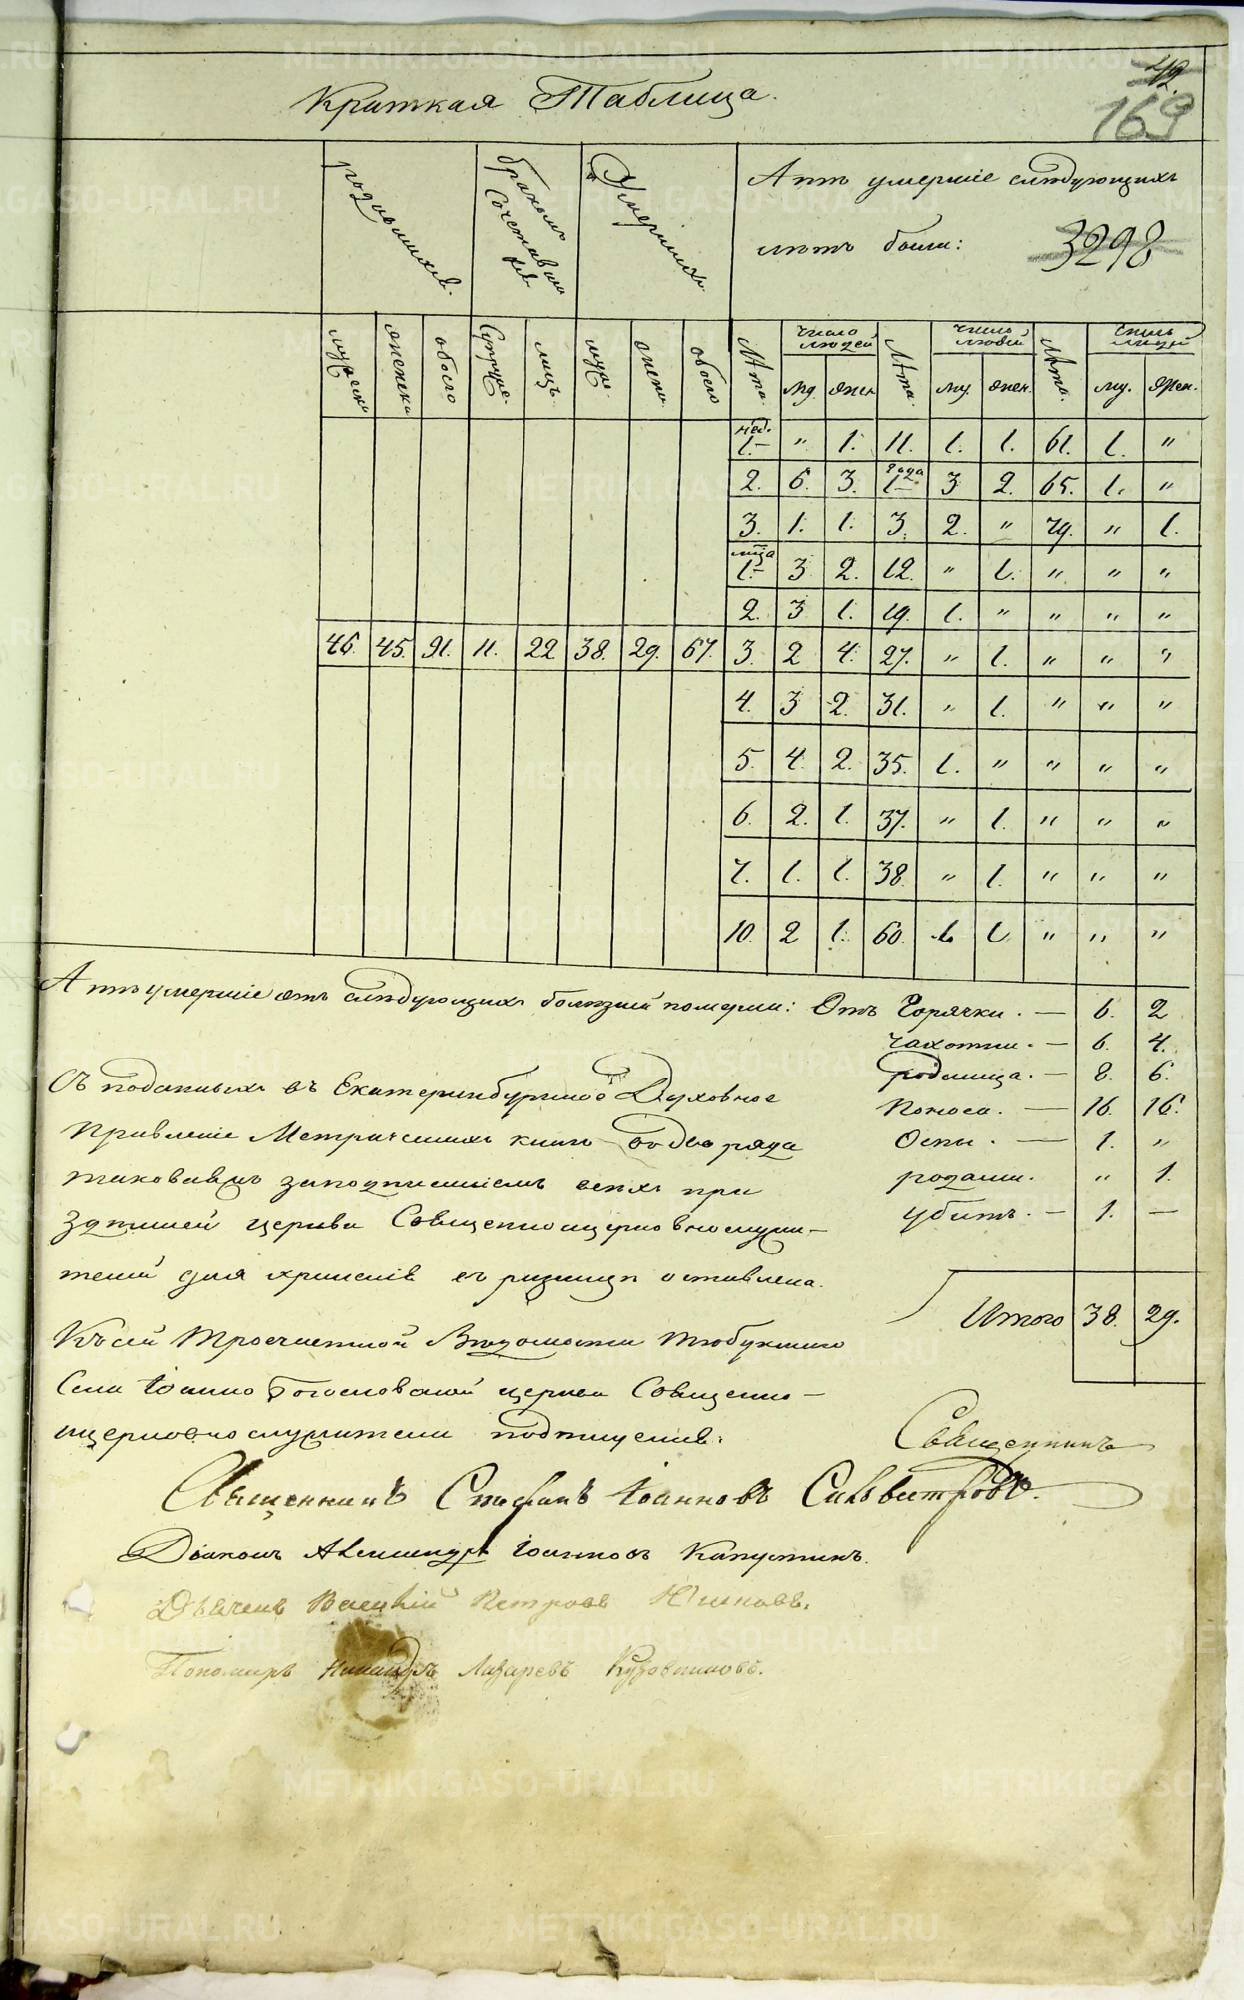 42
169
Краткая Таблица.
родившихся.
бракомъ Сочетавшихся
Умершихъ.
А въ умершіе слѣдующихъ
лѣтъ были:
3298
мужеска
женска
обоего
Супруже.
лицъ
муж.
женск.
обоего
Лѣта.
число людей
Лѣта.
число людей
Лѣта.
число людей
му. жен. му. жен. му. жен.
нед. 1.— " 1. 11. 1. 1. 61. 1. "
2. 6. 3. года 1— 3 2. 65. 1. "
3. 1. 1. 3. 2. " 79. " 1.
мца 1.— 3 2. 12. " 1. " " "
2. 3 1. 19. 1. " " " "
46. 45. 91. 11. 22 38. 29. 67. 3. 2 4. 27. " 1. " " "
4. 3 2. 31. " 1. " " "
5. 4. 2. 35. 1. " " " "
6. 2. 1. 37. " 1. " " "
7. 1. 1. 38. " 1. " " "
10. 2 1. 60. 1. " " "
умершіе отъ слѣдующихъ болѣзней померли: Отъ Горячки. — 6. 2
чахотки. — 6. 4.
родимца. — 8. 6.
Поноса. — 16. 16.
Оспы. — 1. "
родами. " 1.
убитъ. — 1. —
Итого 38. 29.
Съ поданныхъ въ Екатеринбургское Духовное
Правленіе Метрическихъ книгъ
таковая за подписаніемъ всѣхъ при
здѣшней церкви Священноцерковнослужи-
телей для храненія въ ризницѣ оставлена.
Къ сей Троечастной Вѣдомости Тюбукскаго
Села Іоанно Богословской церкви Священно-
церковнослужители подписуемся.
Священникъ
Священникъ Стефанъ Іоанновъ Сильвестровъ.
Діаконъ Александръ Іоанновъ Капустинъ.
Дьячекъ Петровъ
Пономарь Никандръ Лазаревъ Кузовниковъ.
METRIKI.GASO-URAL.RU